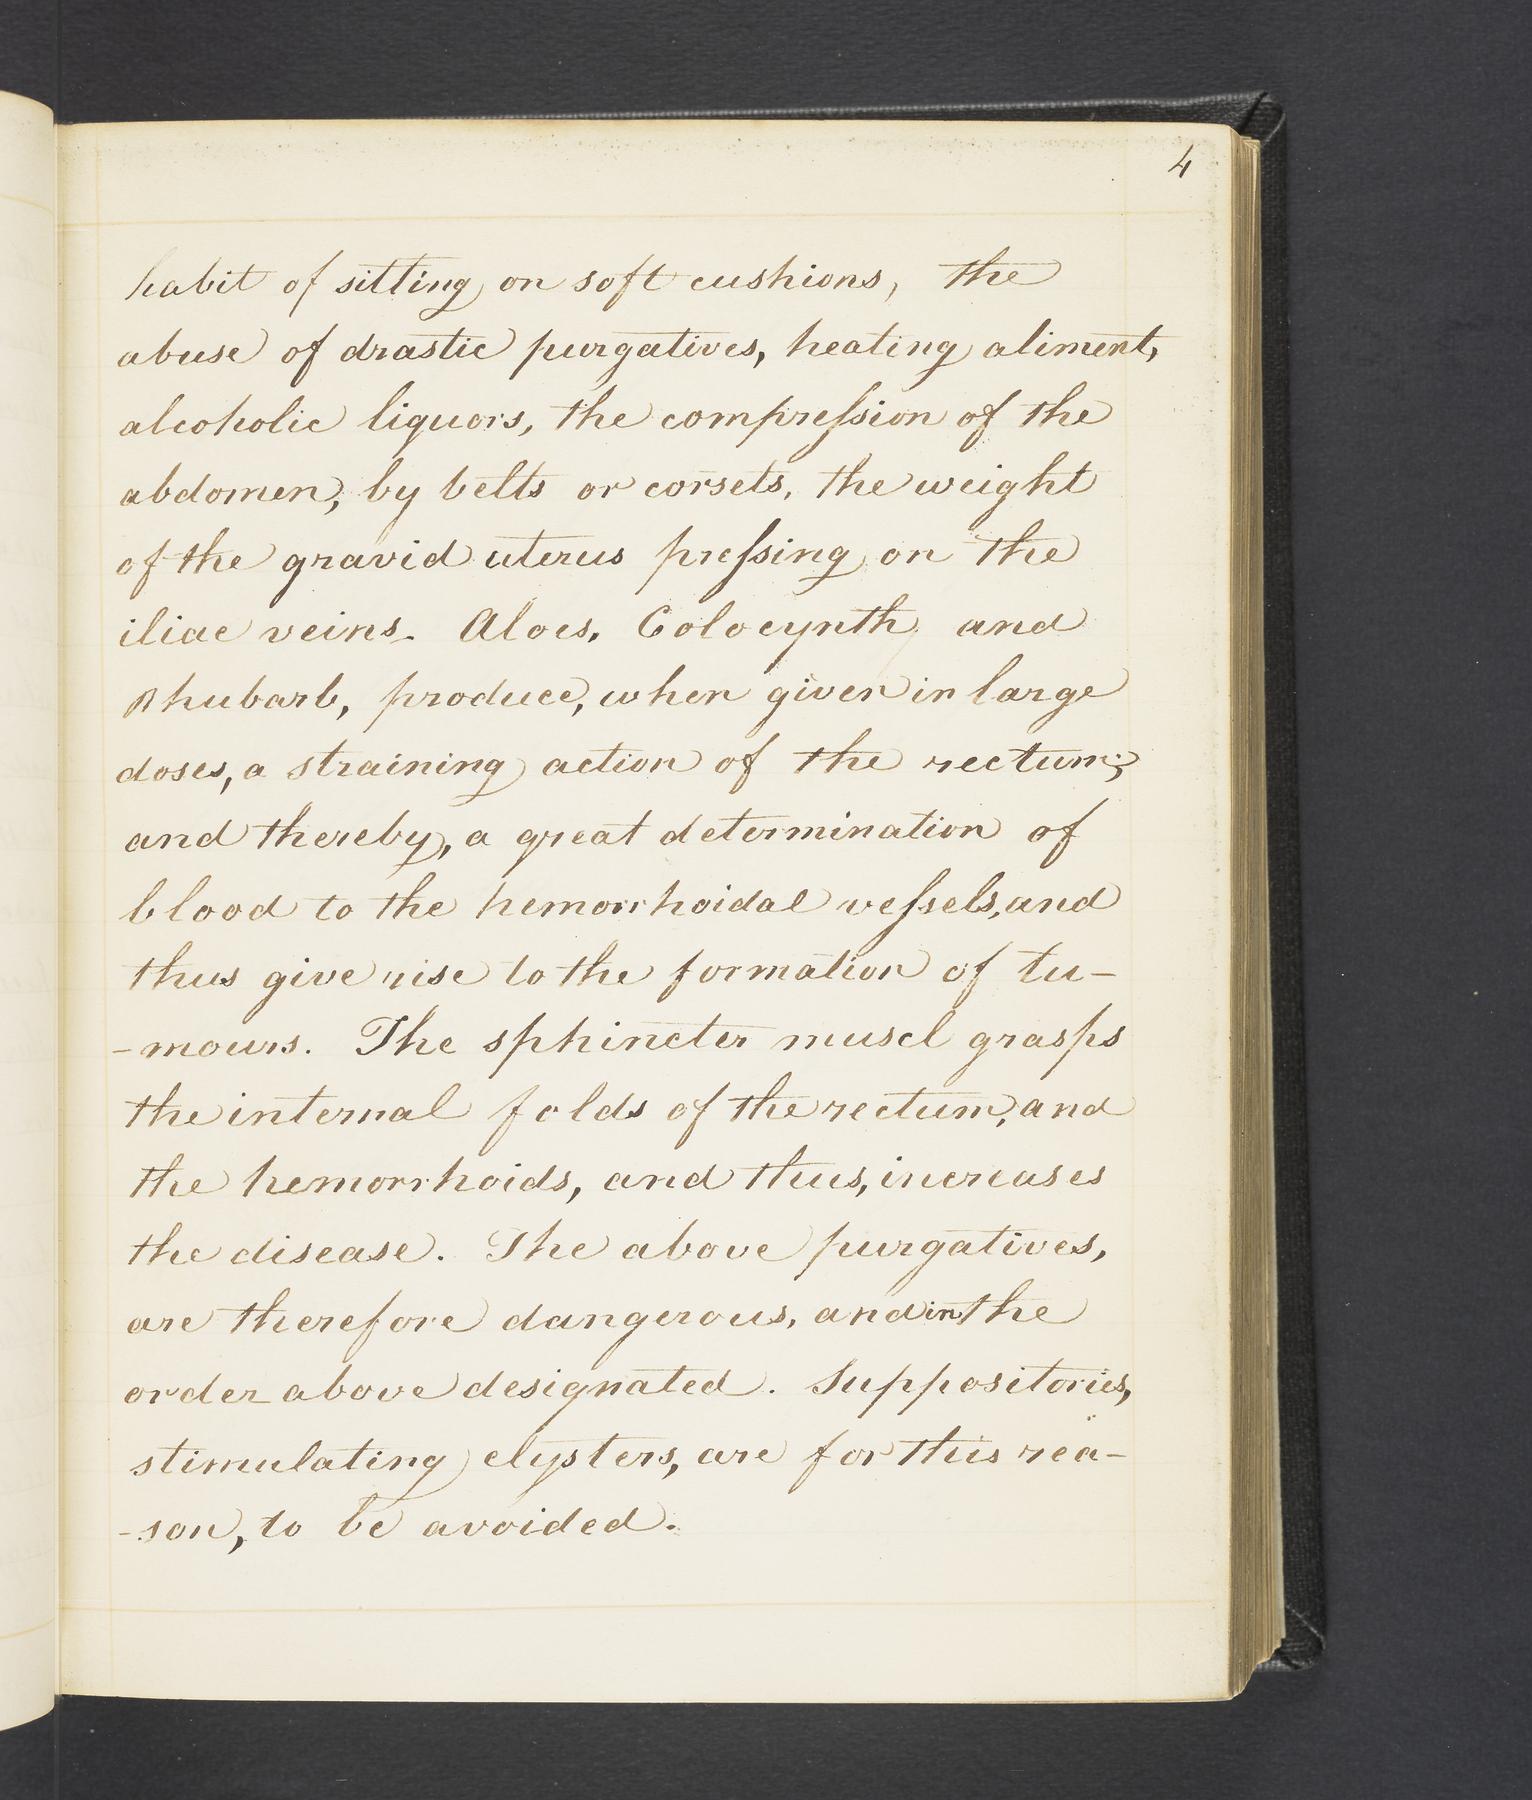 4
habit of sitting on soft cushions, the
abuse of drastic purgatives, heating aliment,
alcoholic liquors, the compreſsion of the
abdomen, by belts or corsets, the weight
of the gravid uterus preſsing on the
iliac veins. Aloes, Colocynth, and
Rhubarb, produce, when given in large
doses, a straining action of the rectum;
and thereby, a great determination of
blood to the hemorrhoidal veſsels, and
thus give rise to the formation of tu-
-mours. The sphincter muscl grasps
the internal folds of the rectum, and
the hemorrhoids, and thus, increases
the disease. The above purgatives,
are therefore dangerous, and in the
order above designated. Suppositories,
stimulating clysters, are for this rea-
-son, to be avoided.